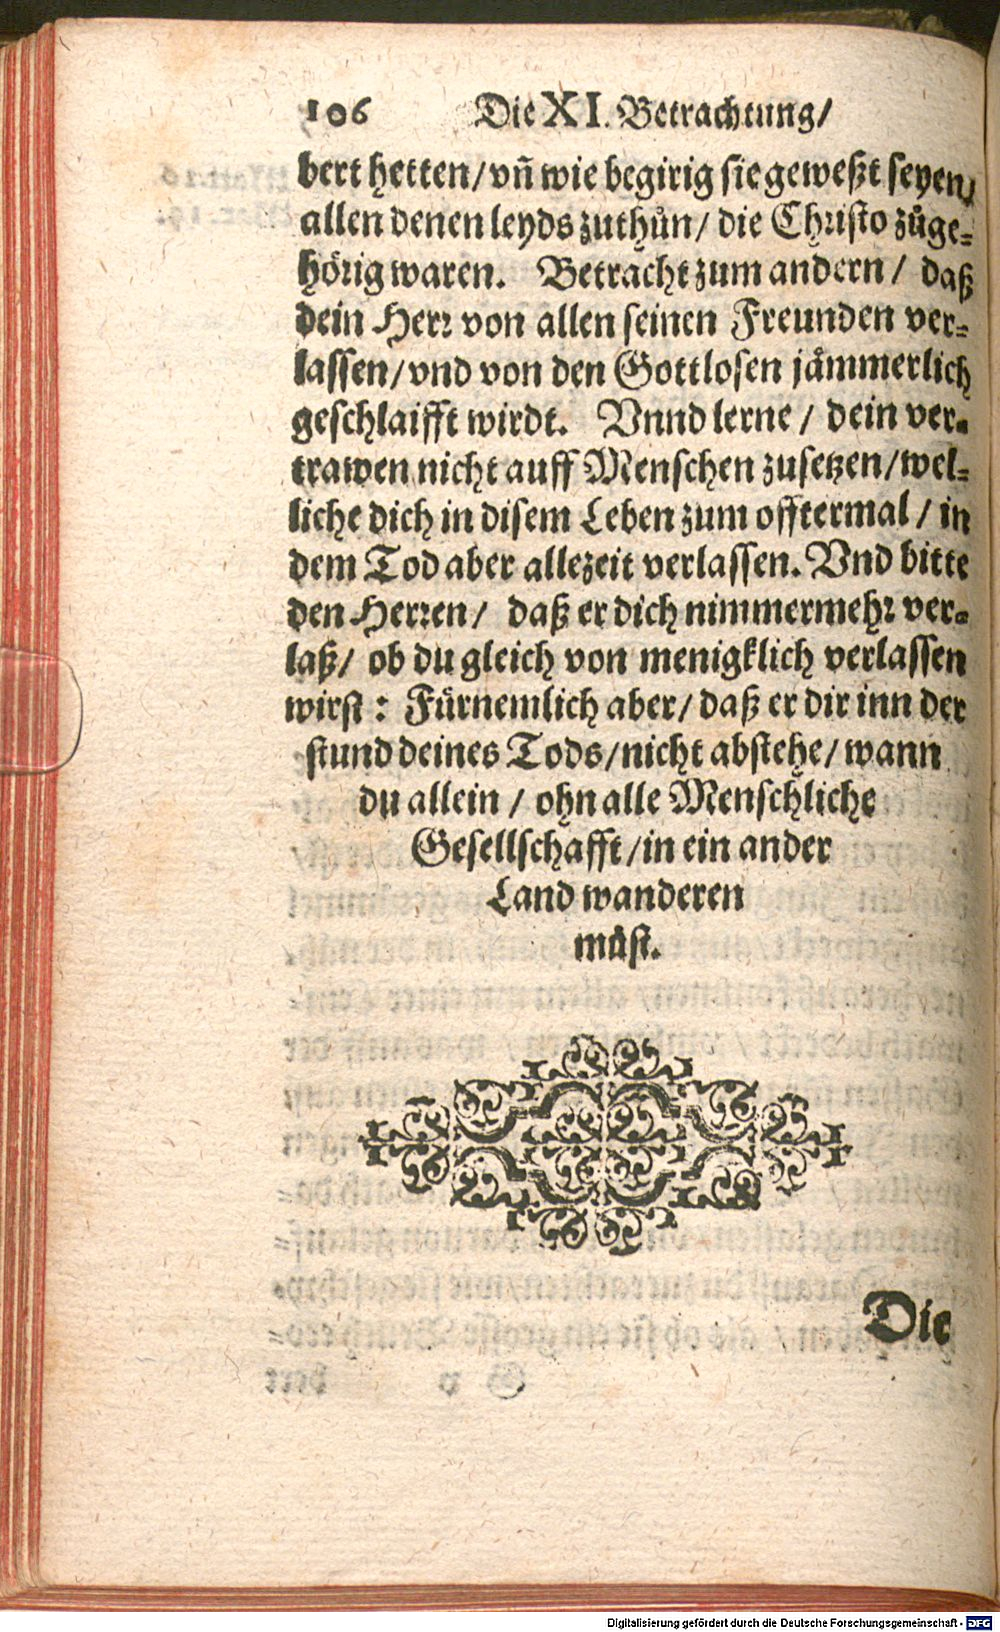 106 Die XI. Betrachtung/
bert hetten/ vñ wie begirig sie geweßt seyen/
allen denen leyds zuthůn/ die Christo zůge-
hörig waren. Betracht zum andern/ daß
dein Herr von allen seinen Freunden ver-
lassen/ vnd von den Gottlosen jåmmerlich
geschlaifft wirdt. Vnnd lerne/ dein ver-
trawen nicht auff Menschen zusetzen/ wel-
liche dich in disem Leben zum offtermal/ in
dem Tod aber allezeit verlassen. Vnd bitte
den Herren/ daß er dich nimmermehr ver-
laß/ ob du gleich von menigklich verlassen
wirst: Fürnemlich aber/ daß er dir inn der
stund deines Tods/ nicht abstehe/ wann
du allein/ ohn alle Menschliche
Gesellschafft/ in ein ander
Land wanderen
můst.
Die
Digitalisierung gefördert durch die Deutsche Forschungsgemeinschaft - DFG